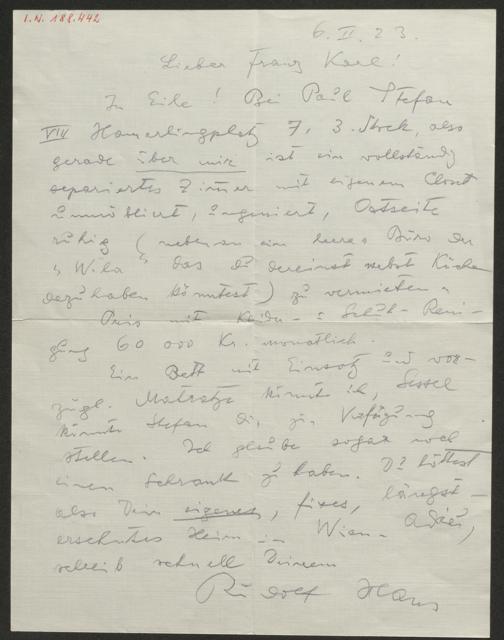 I.N. 188.442
6. II. 23.
Lieber Franz Karl!
In Eile! Bei Paul Stefan
VIII Hamerlingplatz 7, 3. Stock, also
gerade über mir ist ein vollständig
separiertes Zimer mit eigenem Closet
unmöbliert, ungeniert, Ostseite
ruhig (nebenan ein leeres Büro der
"Wila" das du dereinst nebst Küche
dazuhaben könntest) zu vermieten
Preis mit Kleider- u Schuh-Reini-
gung 60 000 Kr. monatlich.
Ein Bett mit Einsatz und vor-
zügl. Matratze könnte ich, Sessel
könnte Stefan dir zur Verfügung
stellen. Ich glaube sogar noch
einen Schrank zu haben. Du hättest
also Dein eigenes, fixes, längst-
ersehntes Heim in Wien. Adieu,
schreib schnell Deinem
Rudolf Hans